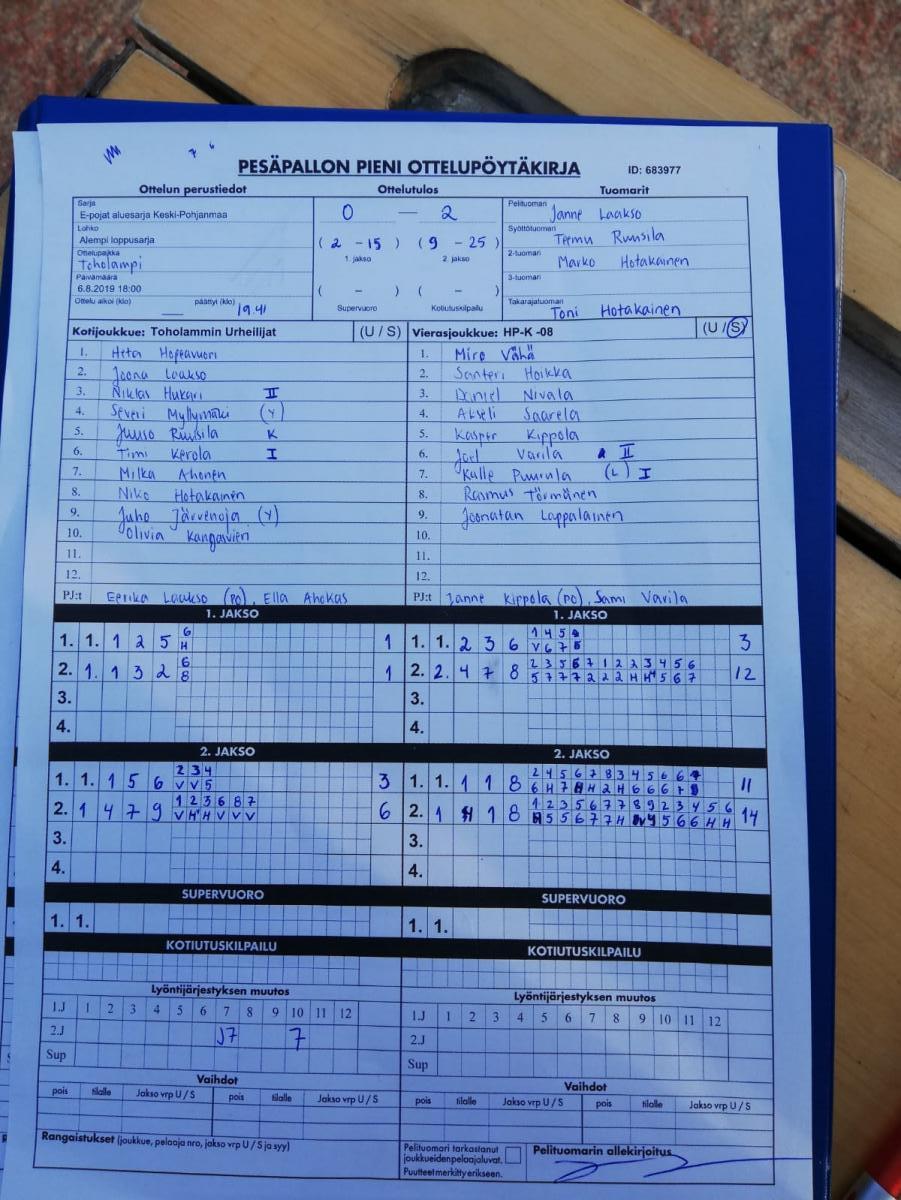 PESÄPALLON PIENI OTTELUPÖYTÄKIRJA ID: 683977
Ottelun perustiedot Ottelutulos Tuomarit
Sarja
E-pojat aluesarja Keski-Pohjanmaa
Lohko
Alempi loppusarja
Ottelupaikka
Toholampi
Päivämäärä
6.8.2019 18:00
Ottelu alkoi (klo) päättyi (klo) 19.41
0 — 2
( 2 - 15 ) ( 9 - 25 )
1. jakso 2. jakso
( - ) ( - )
Supervuoro Kotiutuskilpailu
Pelituomari Janne Laakso
Syöttötuomari Teemu Ruusila
2-tuomari Marko Hotakainen
3-tuomari
Takarajatuomari Toni Hotakainen
Kotijoukkue: Toholammin Urheilijat (U / S)
1. Heta Hopeavuori
2. Joona Laakso
3. Niklas Hukari II
4. Severi Myllymäki (Y)
5. Juuso Ruusila K
6. Timi Kerola I
7. Milka Ahonen
8. Niko Hotakainen
9. Juho Järvenoja (Y)
10. Olivia
11.
12.
PJ:t Eerika Laakso (PO), Ella Ahokas
Vierasjoukkue: HP-K -08 (U / S)
1. Miro Vähä
2. Santeri Hoikka
3. Daniel Nivala
4. Akseli Saarela
5. Kasper Kippola
6. Joel Varila II
7. Kalle Puurula (L) I
8. Rasmus Törmänen
9. Joonatan Lappalainen
10.
11.
12.
PJ:t Janne Kippola (PO), Sami Varila
1. JAKSO
1. 1. 1 2 5 6 1
H
2. 1. 1 3 2 6 1
8
3.
4.
1. JAKSO
1. 1. 2 3 6 1 4 5 3
V 6 7 8
2. 2. 4 7 8 2 3 5 6 7 1 2 2 3 4 5 6 12
5 7 7 7 2 2 2 H H 5 6 7
3.
4.
2. JAKSO
1. 1. 1 5 6 2 3 4 3
V V 5
2. 1 4 7 9 1 2 3 6 8 7 6
V H H V V V
3.
4.
2. JAKSO
1. 1. 1 1 8 2 4 5 6 7 8 3 4 5 6 6 11
6 H 7 H H 2 H 6 6 6 7
2. 1 1 8 1 2 3 5 6 7 7 8 9 2 3 4 5 6 14
5 5 6 7 7 H 5 6 6 H H
3.
4.
SUPERVUORO
1. 1.
SUPERVUORO
1. 1.
KOTIUTUSKILPAILU
KOTIUTUSKILPAILU
Lyöntijärjestyksen muutos
1.J 1 2 3 4 5 6 7 8 9 10 11 12
2.J J7 7
Sup
Lyöntijärjestyksen muutos
1.J 1 2 3 4 5 6 7 8 9 10 11 12
2.J
Sup
Vaihdot
pois tilalle Jakso vrp U / S pois tilalle Jakso vrp U / S
Vaihdot
pois tilalle Jakso vrp U / S pois tilalle Jakso vrp U / S
Rangaistukset (joukkue, pelaaja nro, jakso vrp U / S ja syy)
Pelituomari tarkastanut
joukkueidenpelaajaluvat.
Puutteet merkitty erikseen.
Pelituomarin allekirjoitus